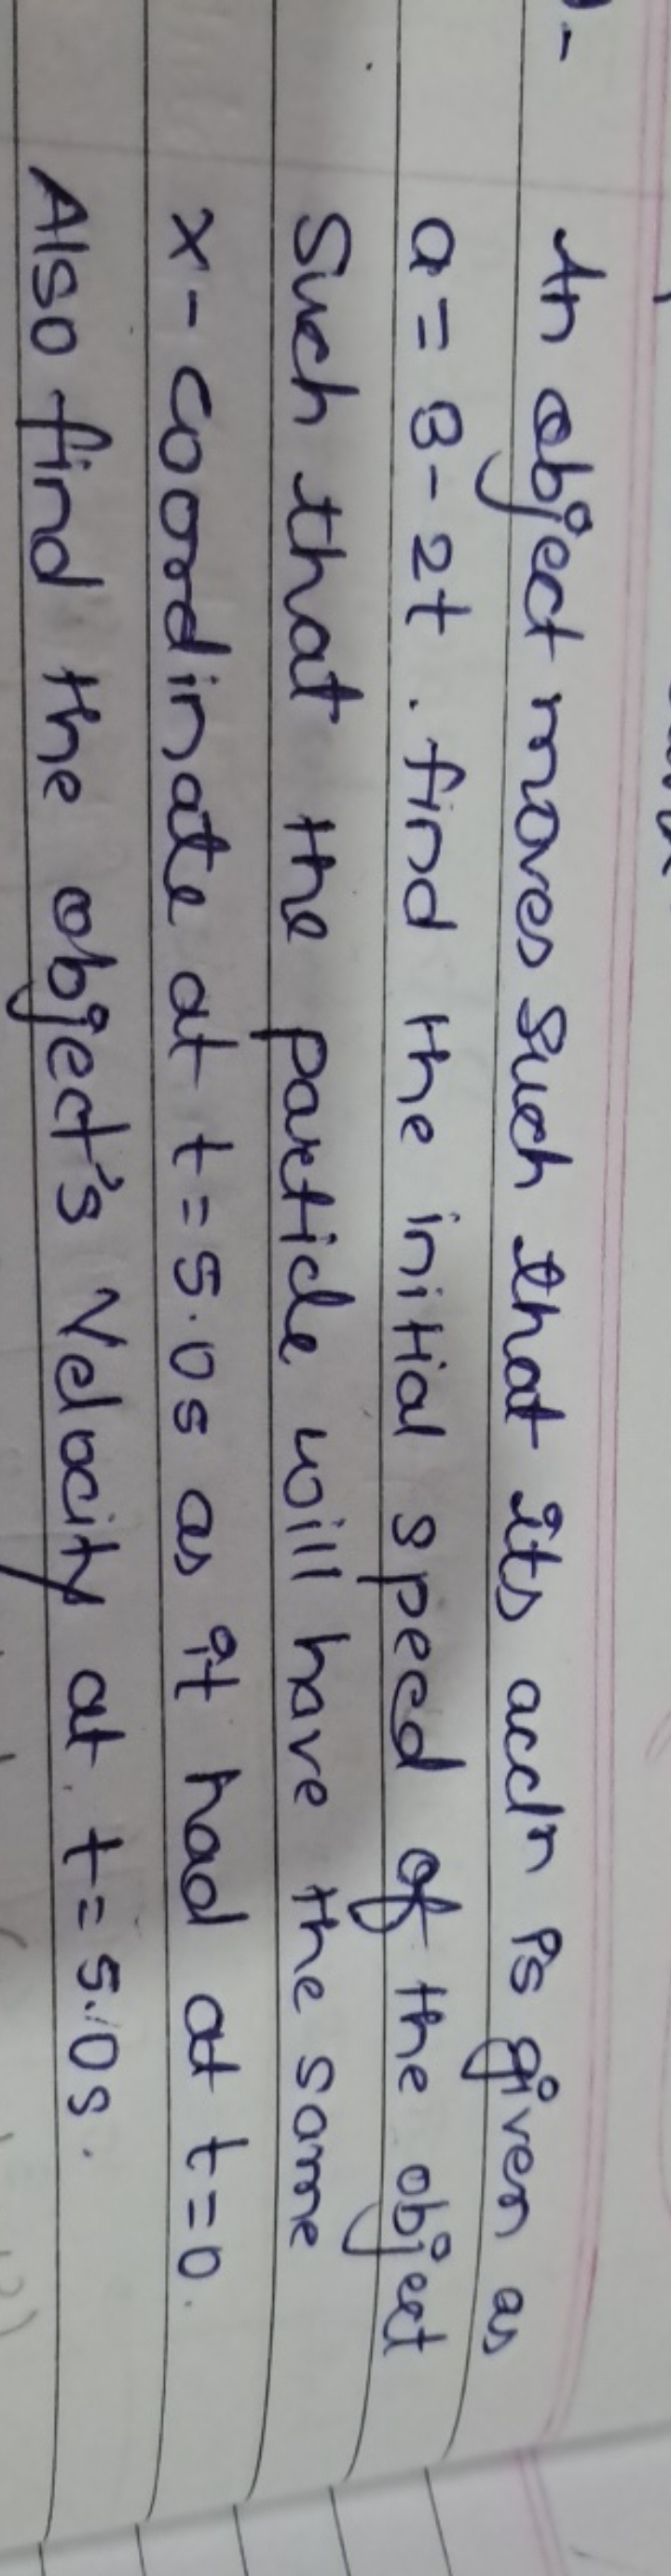 An object moves such that its accln is given as
a = 3-2t . find the initial speed of the object
such that the particle will have the same
x-coordinate at t=5.0s as it had at t=0.
Also find the object's velocity at t=5.0s.